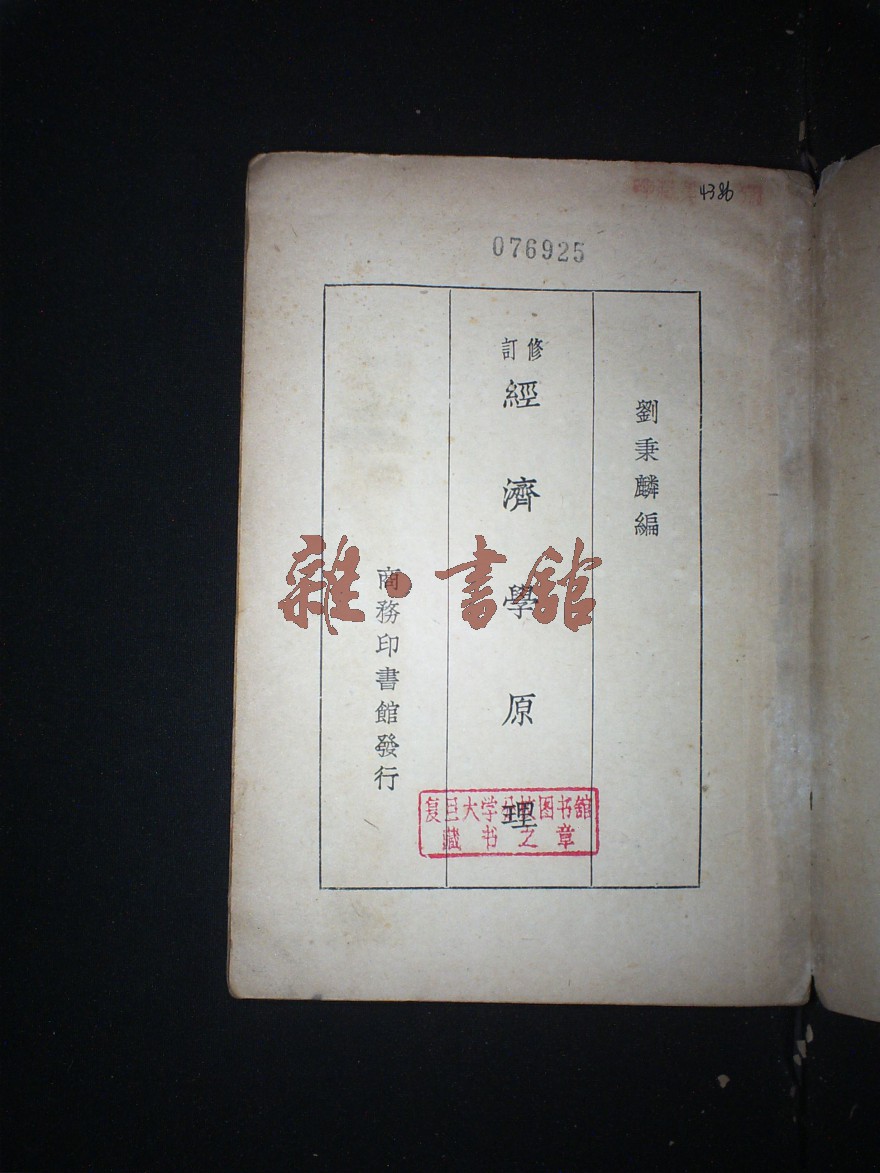 4386
076925
劉秉麟編
修訂
經濟學原理
商務印書館發行
雜·書館
复旦大学分校图书館
藏书之章